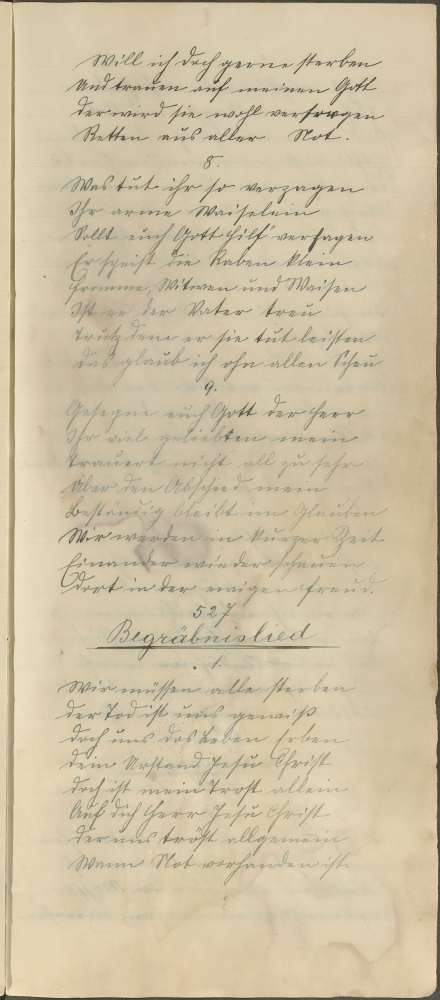 Will ich doch gerne sterben
Und trauen auf meinen Gott
Der wird sie wohl versorgen
Retten aus aller Not.
8.
Was tut ihr so verzagen
Ihr arme Waiselein
Sollt euch Gott Hilf versagen
Er speist die Raben klein
Fromme, Witwen und Waisen
Ist er der Vater treu
Trutz dem er sie tut leisten
das glaub ich ohn allen Scheu
9.
Gesegne euch Gott der Herr
Ihr viel geliebten mein
trauert nicht all zu sehr
Über den Abschied mein
Beständig bleibt im Glauben
Wir werden in kurzer Zeit
Einander wieder schauen
Dort in der ewigen Freud.
527
Begräbnislied
1.
Wir müssen alle sterben
der Tod ist uns gewiß
doch uns das Leben erben
dein Urstand Jesu Christ
doch ist mein Trost allein
Auf dich Herr Jesu Christ
der uns tröst allgemein
Wann Not vorhanden ist.